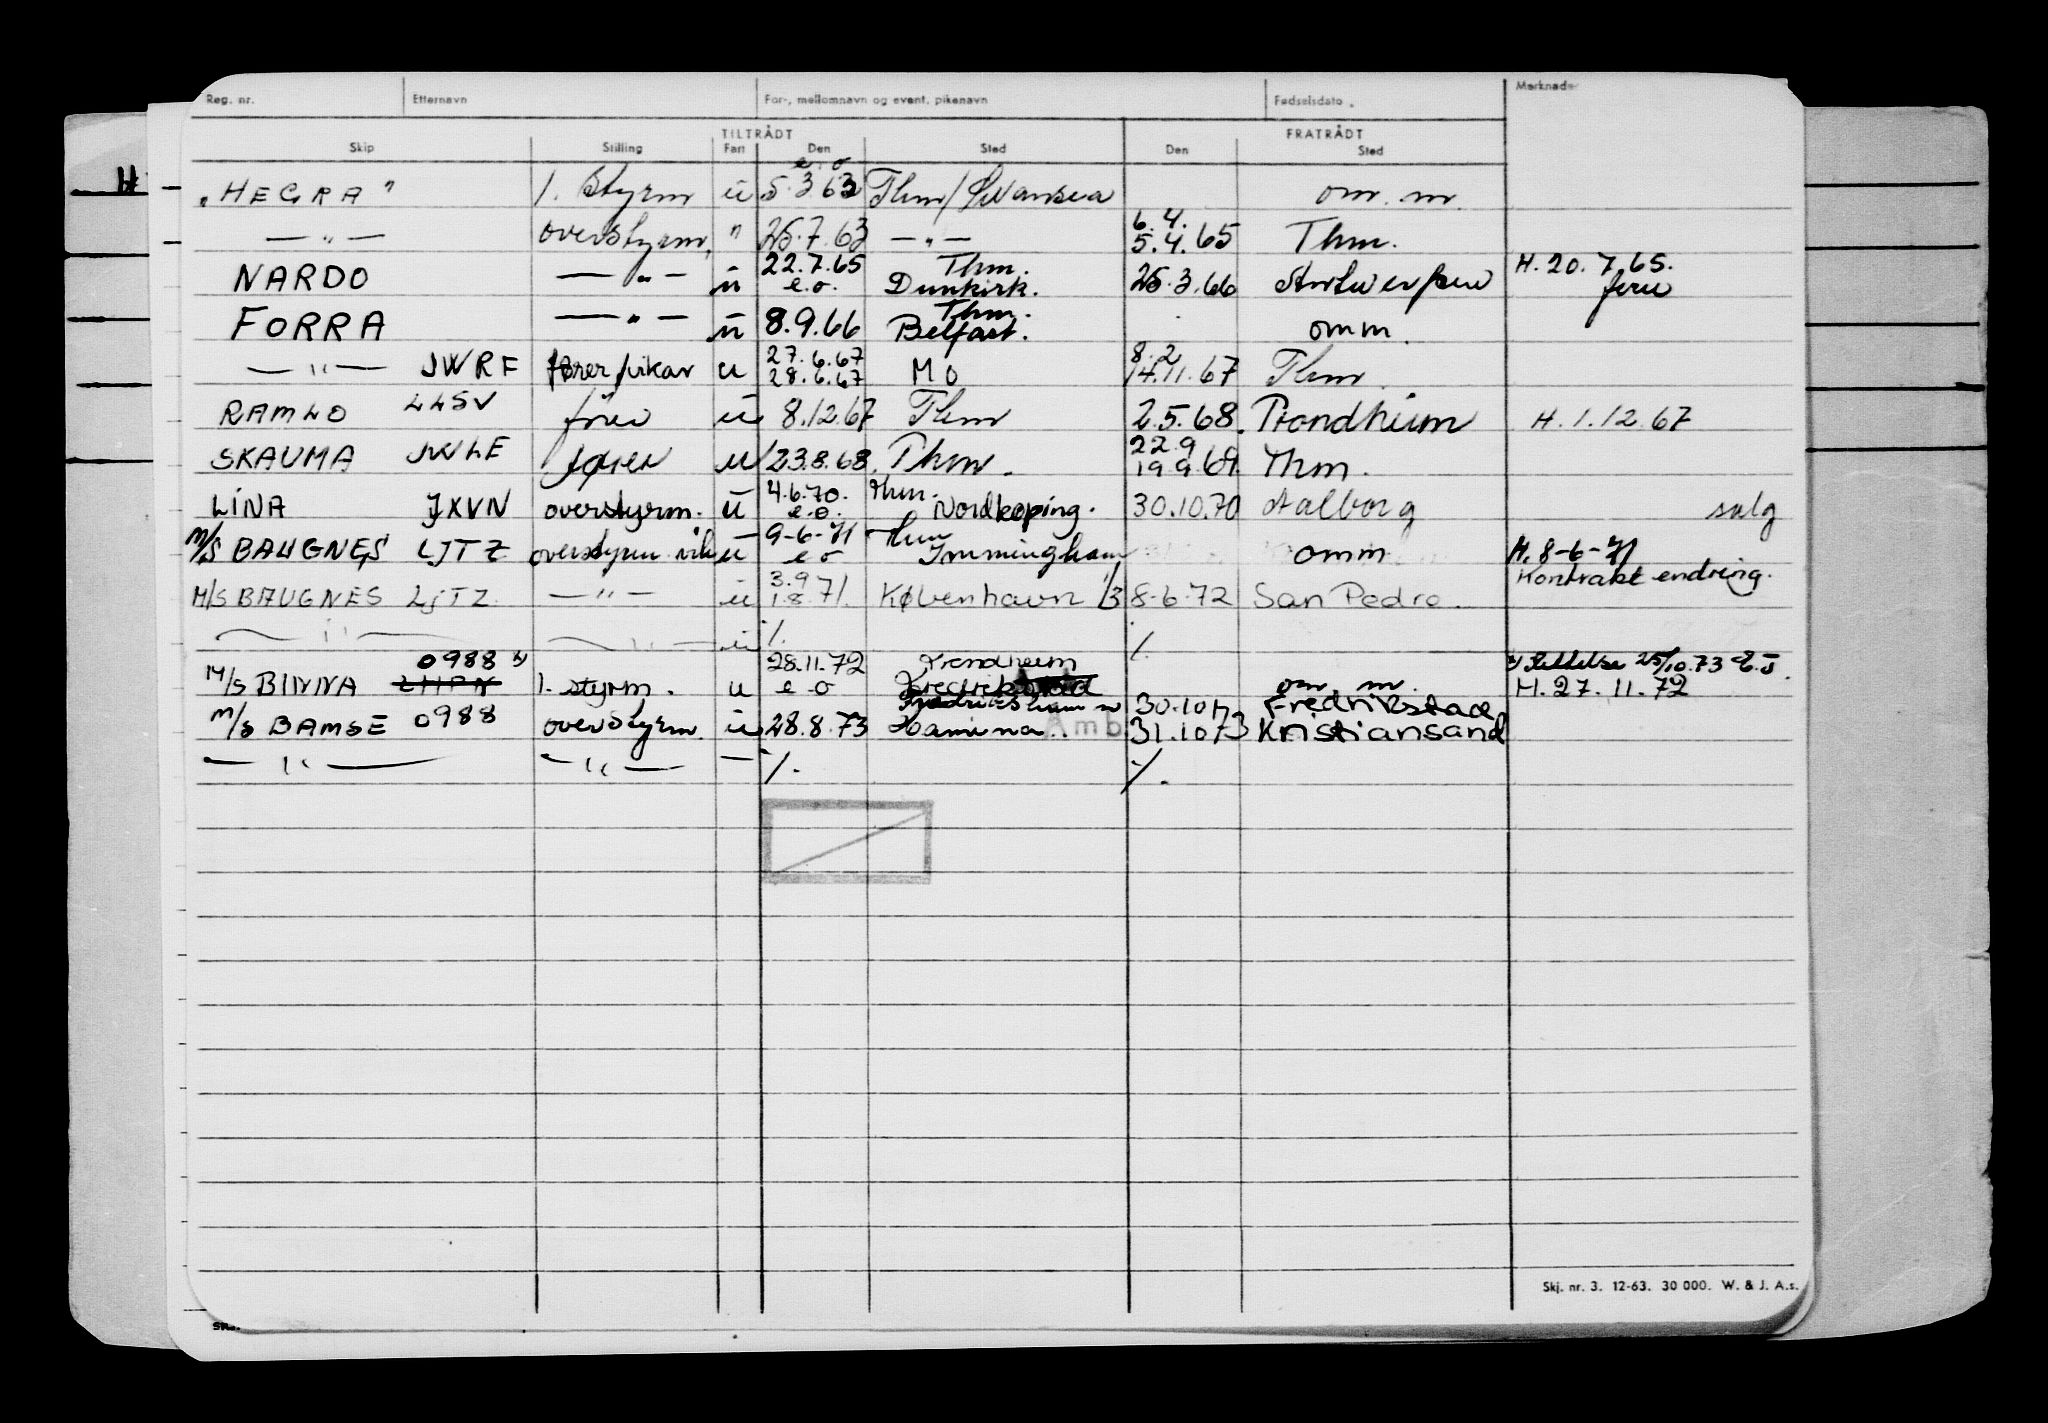 Reg. nr. Etternavn For-, mellomnavn og event. pikenavn Fødselsdato Merknader
TILTRÅDT FRATRÅDT
Skip Stilling Fart Den Sted Den Sted
e. o
"HEGRA" 1. Styrm u 5.3 63 Thm/Swansea om. m.
— " — overstyrm. " 25.7.63 — " — 6.4. 5.4.65 Thm.
NARDO — " — u 22.7.65 e.o. Thm. Dunkirk. 25.3.66 Antwerpen H. 20.7.65. ferie
FORRA — " — u 8.9.66 Thm. Belfast. omm.
— " — JWRF fører vikar u 27.6.67 28.6.67 MO 8.2 14.11.67 Thm.
RAMLO LLSV fører u 8.12.67 Thm 2.5.68. Trondheim H. 1.12.67
SKAUMA JWLE fører u 23.8.68. Thm. 22.9 19.9.69. Thm.
LINA JXVN overstyrm. u 4.6.70. e.o. Thm. Nordkøping. 30.10.70 Aalborg salg
M/S BAUGNES LJTZ overstyrm vik u 9-6-71 e o Thm Immingham omm H. 8-6-71
M/S BAUGNES LJTZ — " — u 3.9 1.8.71. København 1/3 8.6.72 San Pedro. Kontrakt endring.
— " — — " — u %. %.
M/S BINNA 0988 LHPN 1. styrm. u 28.11.72 e o Trondheim Fredrikstad om. m. Rettelse 25/10.73 E.J. H. 27.11.72
Fredrikshamn 30.10 Fredrikstad
M/S BAMSE 0988 overstyrm. u 28.8.73 Hamina. 31.10 73 Kristiansand
Amb
— " — — " — — %. %.
Skj. nr. 3. 12-63. 30 000. W. & J. A.s.